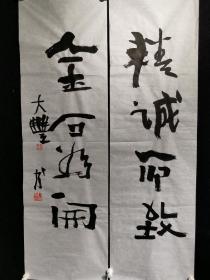 精诚所致
金石为开
大豐